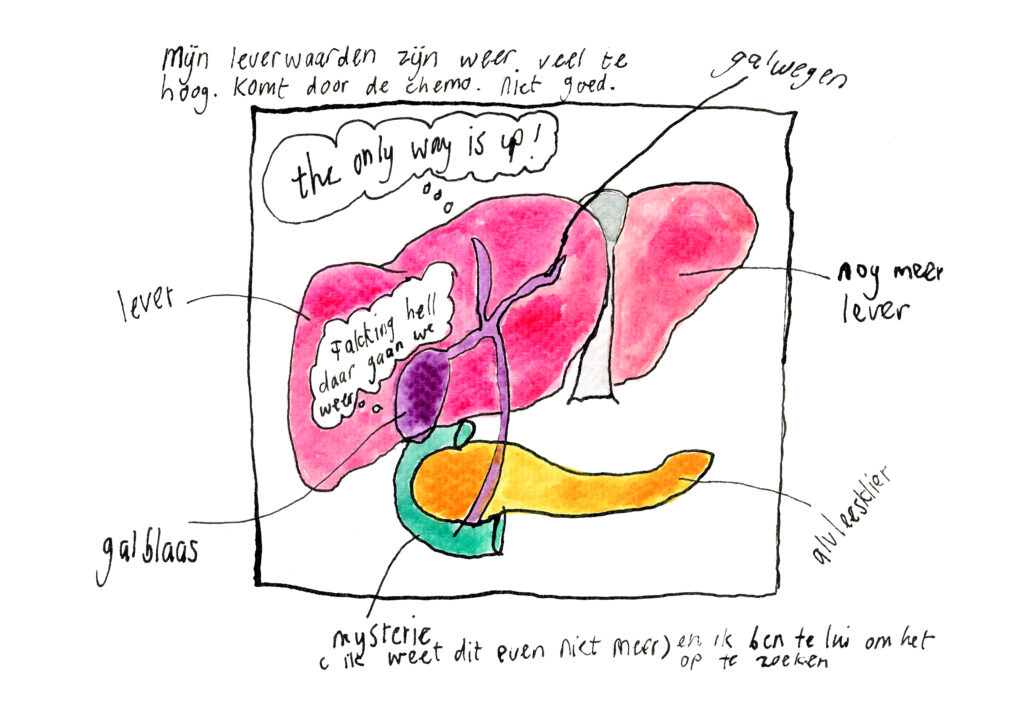 Mijn leverwaarden zijn weer veel te
hoog. Komt door de chemo. Niet goed.
galwegen
the only way is up!
lever
nog meer
lever
Falcking hell
daar gaan we
weer
galblaas
alvleesklier
mysterie
( ik weet dit even niet meer) en ik ben te lui om het
op te zoeken